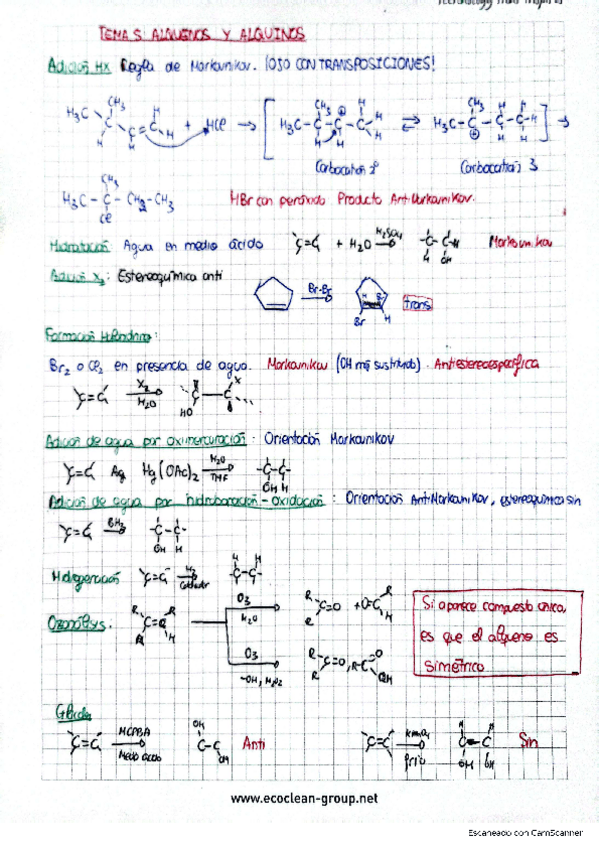 TEMA 5: ALQUENOS Y ALQUINOS
Adición HX Regla de Markovnikov. ¡OJO CON TRANSPOSICIONES!
H3C CH3 C C=C H H H + HCl → [H3C-C-C-C-H CH3 H H H H ⊕ ⇌ H3C-C-C-C-H CH3 H H H ⊕] →
Carbocatión 2º Carbocatión 3
H3C-C-CH2-CH3 CH3 Cl HBr con peróxido Producto AntiMarkovnikov.
Hidratación Agua en medio ácido C=C + H2O H2SO4 → -C-C-H OH Markovnikov
Adición X2: Estereoquímica anti
Br-Br → Br H Trans
Formación Hidrina:
Br2 o Cl2 en presencia de agua. Markovnikov (OH más sustituido). Antiestereoespecífica
C=C X2 → H2O HO C-C X
Adición de agua por oximercuración: Orientación Markovnikov
C=C Hg(OAc)2 H2O → THF -C-C- OH H
Adición de agua por hidroboración-oxidación: Orientación AntiMarkovnikov, estereoquímica sin
C=C BH3 → -C-C- OH H
C=C H2 → H H -C-C-
Ozonólisis. R R C=C R H O3 → H2O R R C=O + O=C R H
O3 → -OH, H2O2 R R C=O, R-C O OH
Si aparece compuesto único,
es que el alqueno es
simétrico
C=C MCPBA → Medio ácido OH C-C OH Anti C=C KMnO4 → frío H H C-C OH OH Sin
www.ecoclean-group.net
Escaneado con CamScanner